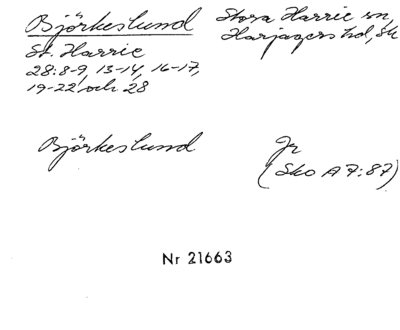 Björkeslund Stora Harrie sn,
St. Harrie Harjagers hd, Sk
28:8-9, 13-14, 16-17,
19-22 och 28
Björkeslund Jr
(Sko A 7:87)
Nr 21663